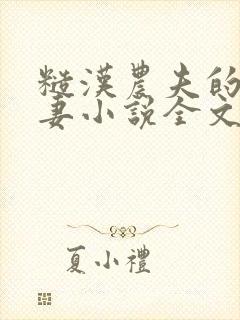 糙漢農夫的
妻小說全文
夏小禮